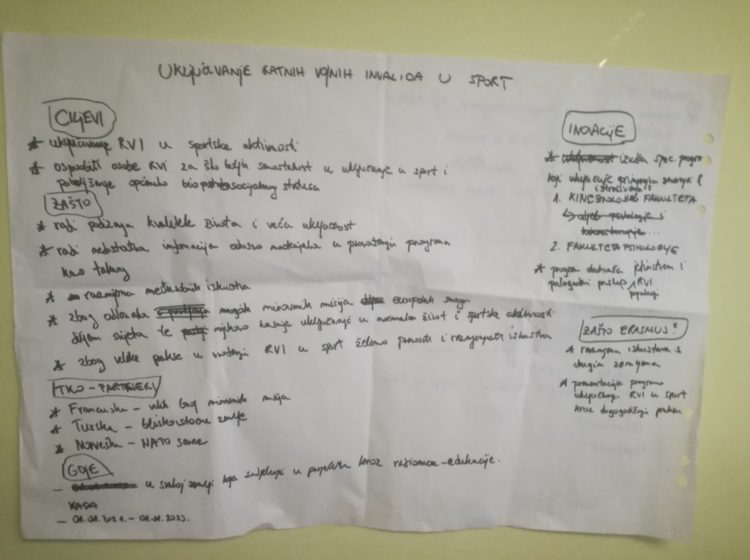 UKLJUČIVANJE RATNIH VOJNIH INVALIDA U SPORT
CILJEVI
* uključivanje RVI u sportske aktivnosti
* osposobiti osobe RVI za što bolju samostalnost u uključivanje u sport i
poboljšanje općenito biopsihosocijalnog statusa
ZAŠTO
* radi podizanja kvalitete života i veća uključenost
* radi nedostatka informacija odnosno materijala u provođenju programa
kao takvog
* razmjena međusobnih iskustva
* zbog odlazaka mnogih mirovnih misija europskih snaga
diljem svijeta te njihovo kasnije uključivanje u normalan život i sportske aktivnosti
* zbog velike prakse u vođenju RVI u sport želimo prenositi i razmjenjivati iskustva
TKO - PARTNERI
* Francuska - velik broj mirovnih misija
* Turska - bliskoistočne zemlje
* Norveška - NATO
GDJE
- u svakoj zemlji koja sudjeluje u projektu kroz edukacije.
KADA
- 01.01.2021. - 01.01.2023.
INOVACIJE
* izrada spec. programa
koji uključuje primjenu znanja i
istraživanja iz
1. KINEZIOLOŠKOG FAKULTETA
2. FAKULTETA PSIHOLOGIJE
* program i
pristup RVI
populaciji
ZAŠTO ERASMUS?
* razmjena iskustava s
drugim zemljama
* prezentacija programa
uključivanja RVI u sport
kroz dugogodišnju praksu